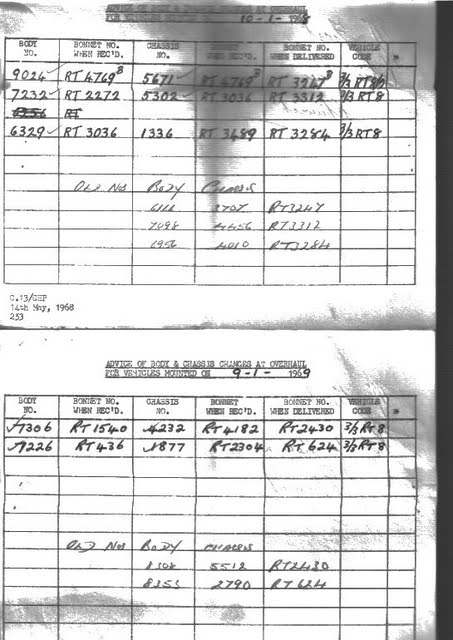 ADVICE OF BODY & CHASSIS CHANGES AT OVERHAUL
FOR VEHICLES MOUNTED ON 10-1- 1968
BODY NO. BONNET NO. WHEN REC'D. CHASSIS NO. BONNET WHEN REC'D. BONNET NO. WHEN DELIVERED VEHICLE CODE
9024 RT 4769 5671 RT 4769 RT 3247 3/3 RT8
7232 RT 2272 5302 RT 3036 RT 3312 3/3 RT8
RT
6329 RT 3036 1336 RT 3489 RT 3284 3/3 RT8
OLD NOS BODY CHASSIS
3707 RT3247
7098 4456 RT3312
1956 4010 RT3284
C.13/CHP
14th May, 1968
253
ADVICE OF BODY & CHASSIS CHANGES AT OVERHAUL
FOR VEHICLES MOUNTED ON 9-1- 1969
BODY NO. BONNET NO. WHEN REC'D. CHASSIS NO. BONNET WHEN REC'D. BONNET NO. WHEN DELIVERED VEHICLE CODE
7306 RT 1540 4232 RT 4182 RT 2430 3/3 RT8
7226 RT 436 1877 RT 2304 RT 624 3/3 RT8
OLD NOS BODY CHASSIS
8308 5512 RT2430
8253 2790 RT624